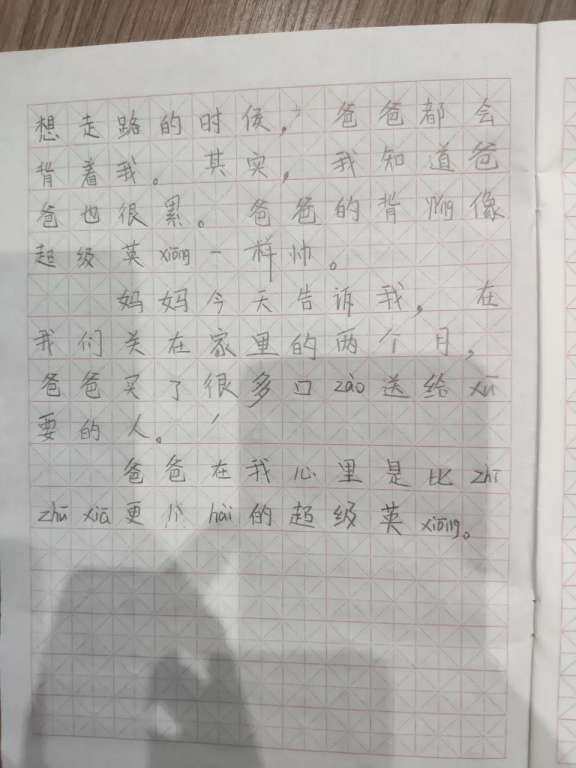 想走路的时候，爸爸都会
背着我。其实，我知道爸
爸也很累。爸爸的背yǐng像
超级英xióng一样帅。
妈妈今天告诉我，在
我们关在家里的两个月，
爸爸买了很多口zào送给xū
要的人。
爸爸在我心里是比zhī
zhū xiá更lì hài的超级英xióng。